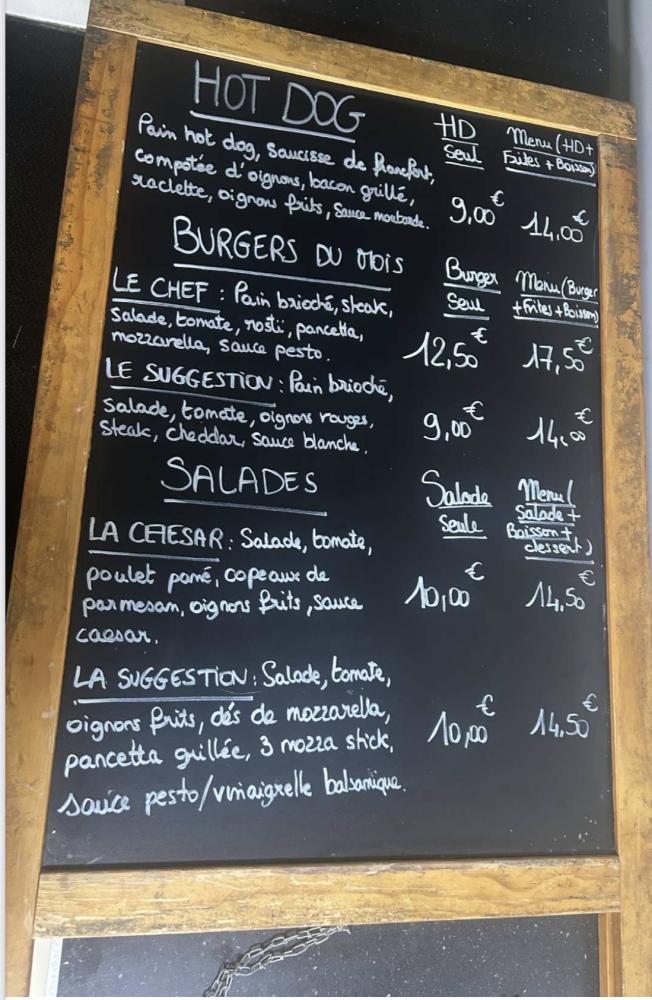 HOT DOG
HD Seul
Menu (HD + Frites + Boisson)
Pain hot dog, Saucisse de Francfort,
compotée d'oignons, bacon grillé,
raclette, oignons frits, Sauce moutarde.
9,00€ 14,00€
BURGERS DU MOIS
Burger Seul
Menu (Burger + Frites + Boisson)
LE CHEF : Pain brioché, steak,
Salade, tomate, rosti, pancetta,
mozzarella, sauce pesto.
12,50€ 17,50€
LE SUGGESTION : Pain brioché,
Salade, tomate, oignons rouges,
Steak, cheddar, Sauce blanche.
9,00€ 14,00€
SALADES
Salade Seule
Menu (Salade + Boisson + dessert)
LA CEAESAR : Salade, tomate,
poulet pané, copeaux de
parmesan, oignons frits, sauce
caesar.
10,00€ 14,50€
LA SUGGESTION : Salade, tomate,
oignons frits, dés de mozzarella,
pancetta grillée, 3 mozza stick,
sauce pesto/vinaigrette balsamique.
10,00€ 14,50€